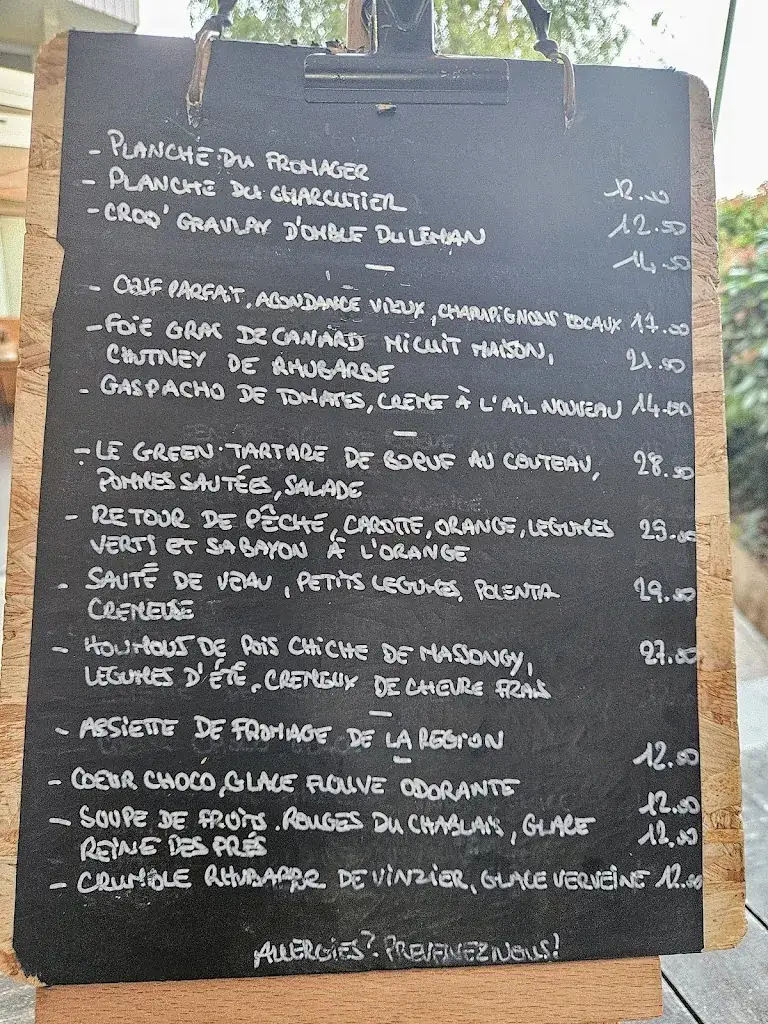 - PLANCHE DU FROMAGER 12.50
- PLANCHE DU CHARCUTIER 12.50
- CROQ' GRAVLAX D'OMBLE DU LEMAN 14.50
—
- OEUF PARFAIT, ABONDANCE VIEUX, CHAMPIGNONS LOCAUX 17.00
- FOIE GRAS DE CANARD MICUIT MAISON, 21.50
CHUTNEY DE RHUBARBE
- GASPACHO DE TOMATES, CREME À L'AIL NOUVEAU 14.00
—
- LE GREEN TARTARE DE BOEUF AU COUTEAU, 28.50
POMMES SAUTÉES, SALADE
- RETOUR DE PÊCHE, CAROTTE, ORANGE, LEGUMES 29.00
VERTS ET SABAYON À L'ORANGE
- SAUTÉ DE VEAU, PETITS LEGUMES, POLENTA 29.50
CREMEUSE
- HOUMOUS DE POIS CHICHE DE MASSONGY, 27.50
LEGUMES D'ÉTÉ, CREMEUX DE CHEVRE FRAIS
—
- ASSIETTE DE FROMAGE DE LA REGION 12.00
—
- COEUR CHOCO, GLACE FLOUVE ODORANTE 12.00
- SOUPE DE FRUITS ROUGES DU CHABLAIS, GLACE 12.00
REINE DES PRÉS
- CRUMBLE RHUBARBE DE VINZIER, GLACE VERVEINE 12.00
ALLERGIES? PREVENEZ NOUS!